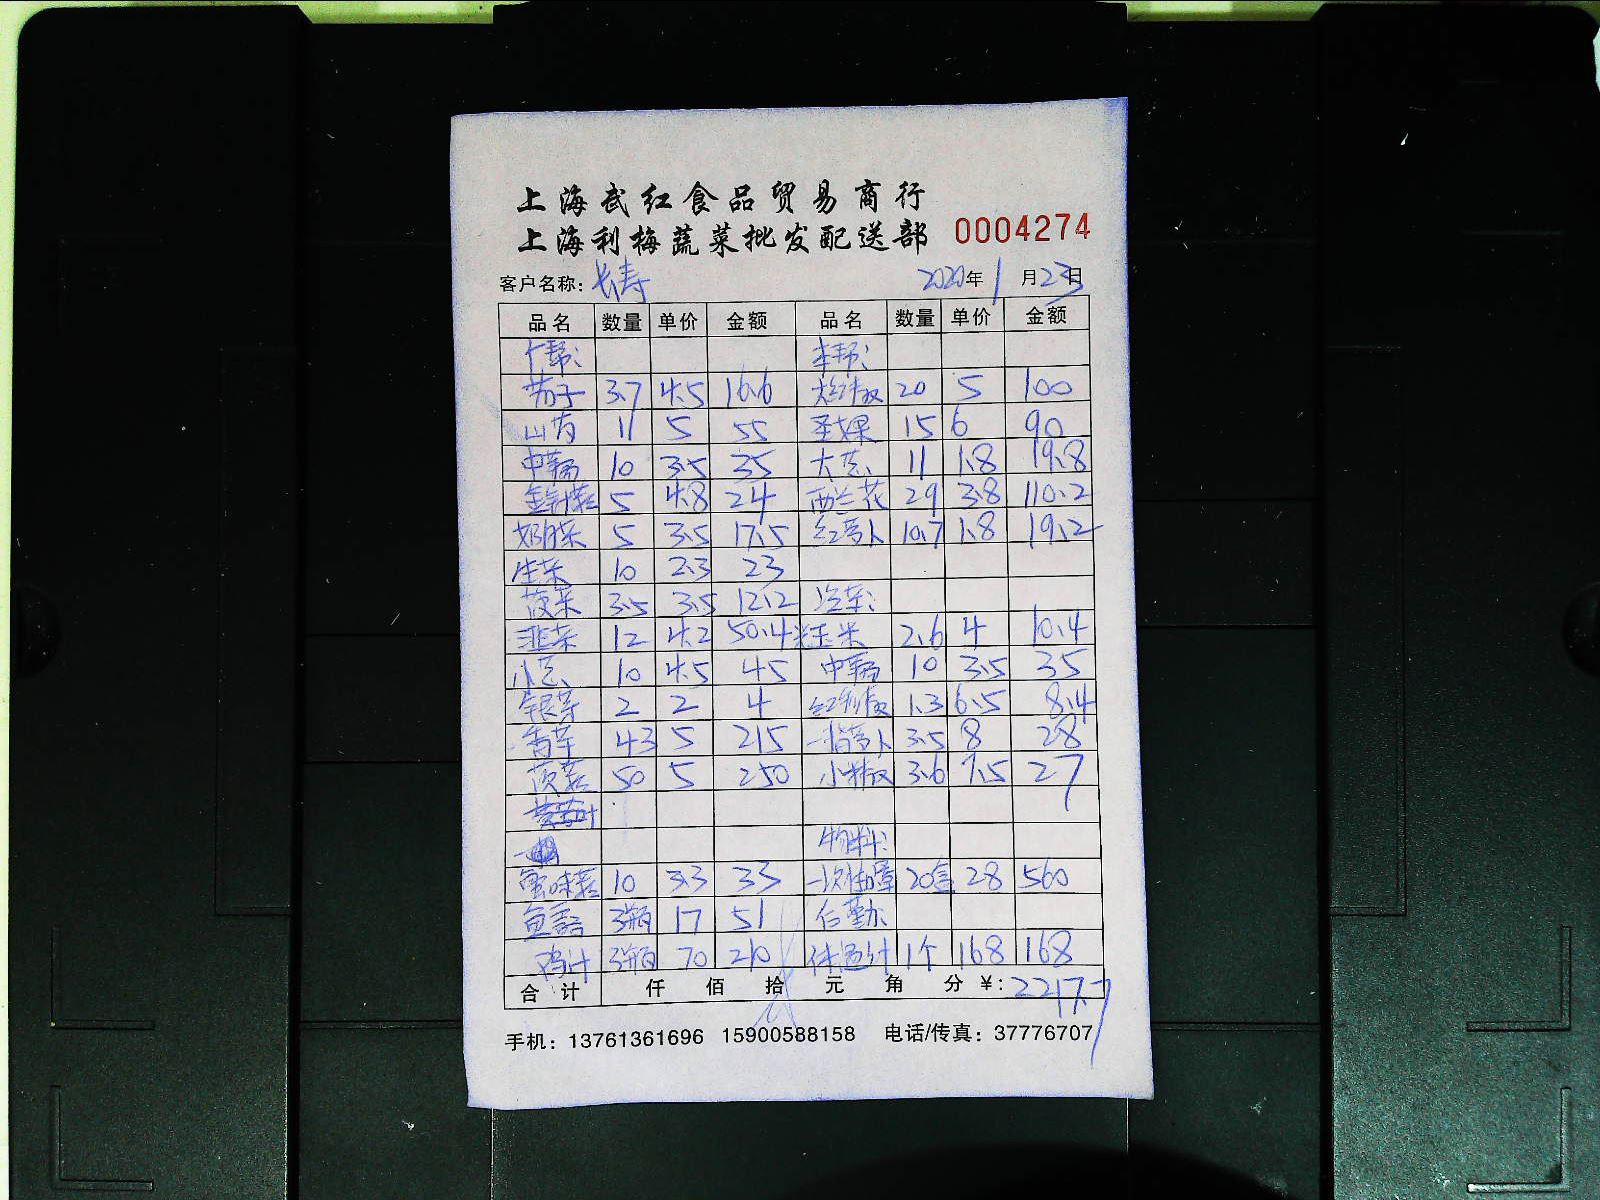 上海武红食品贸易商行
上海利梅蔬菜批发配送部 0004274
客户名称：长寿 2020年1月23日
品名 数量 单价 金额 品名 数量 单价 金额
广帮： 本帮：
茄子 3.7 4.5 16.6 20 5 100
山药 11 5 55 圣女果 15 6 90
中芹 10 3.5 35 大葱 11 1.8 19.8
金针菇 5 4.8 24 西兰花 29 3.8 110.2
奶白菜 5 3.5 17.5 红萝卜 10.7 1.8 19.2
生菜 10 2.3 23
菠菜 3.5 3.5 12.2
韭菜 12 4.2 50.4 玉米 2.6 4 10.4
小葱 10 4.5 45 中芹 10 3.5 35
银芽 2 2 4 红利椒 1.3 6.5 8.4
香芹 43 5 215 萝卜 3.5 8 28
50 5 250 小米椒 3.6 7.5 27
物料：
蟹味菇 10 3.3 33 20盒 28 560
鱼露 3瓶 17 51
鸡汁 3瓶 70 210 体温计 1个 168 168
合计 仟 佰 拾 元 角 分 ¥：2217.7
手机：13761361696 15900588158 电话/传真：37776707